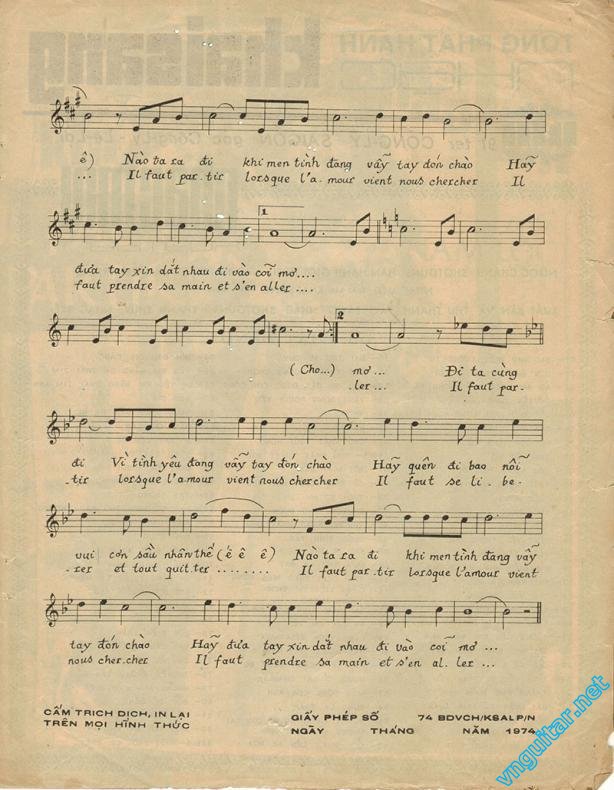 ê) Nào ta ra đi khi men tình đang vẫy tay đón chào Hãy
... Il faut par-tir lorsque l'a-mour vient nous chercher Il
1
đưa tay xin dắt nhau đi vào cõi mơ....
faut prendre sa main et s'en aller ....
2
(Cho...) mơ... Đi ta cùng
.ler... Il faut par-
đi Vì tình yêu đang vẫy tay đón chào Hãy quên đi bao nỗi
-tir lorsque l'amour vient nous chercher Il faut se li-be-
vui cơn sầu nhân thế (ế ê ê) Nào ta ra đi khi men tình đang vẫy
-rer et tout quit.ter ........ Il faut par-tir lorsque l'amour vient
tay đón chào Hãy đưa tay xin dắt nhau đi vào cõi mơ ...
nous cher.cher Il faut prendre sa main et s'en al.ler ...
CẤM TRÍCH DỊCH, IN LẠI
TRÊN MỌI HÌNH THỨC
GIẤY PHÉP SỐ 74 BDVCH/KSALP/N
NGÀY THÁNG NĂM 1974
vnguitar.net